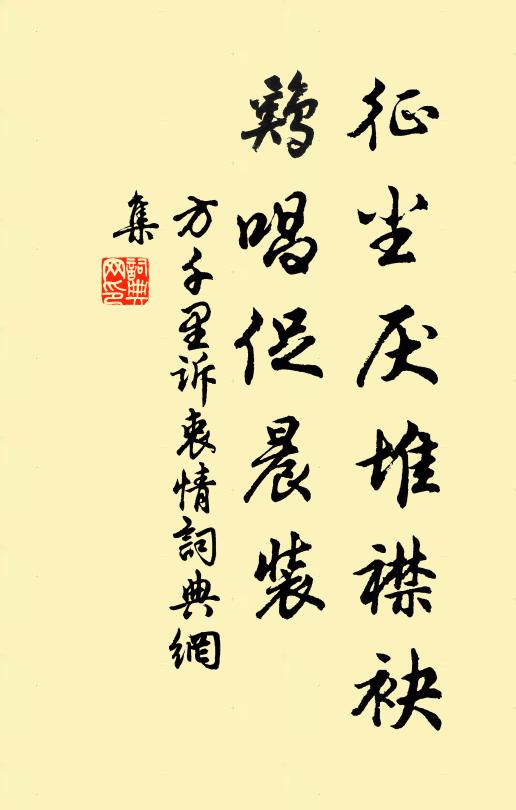 征尘厌堆襟袂
鷄唱促晨装
方千里诉衷情詞典網
集
詞典网印